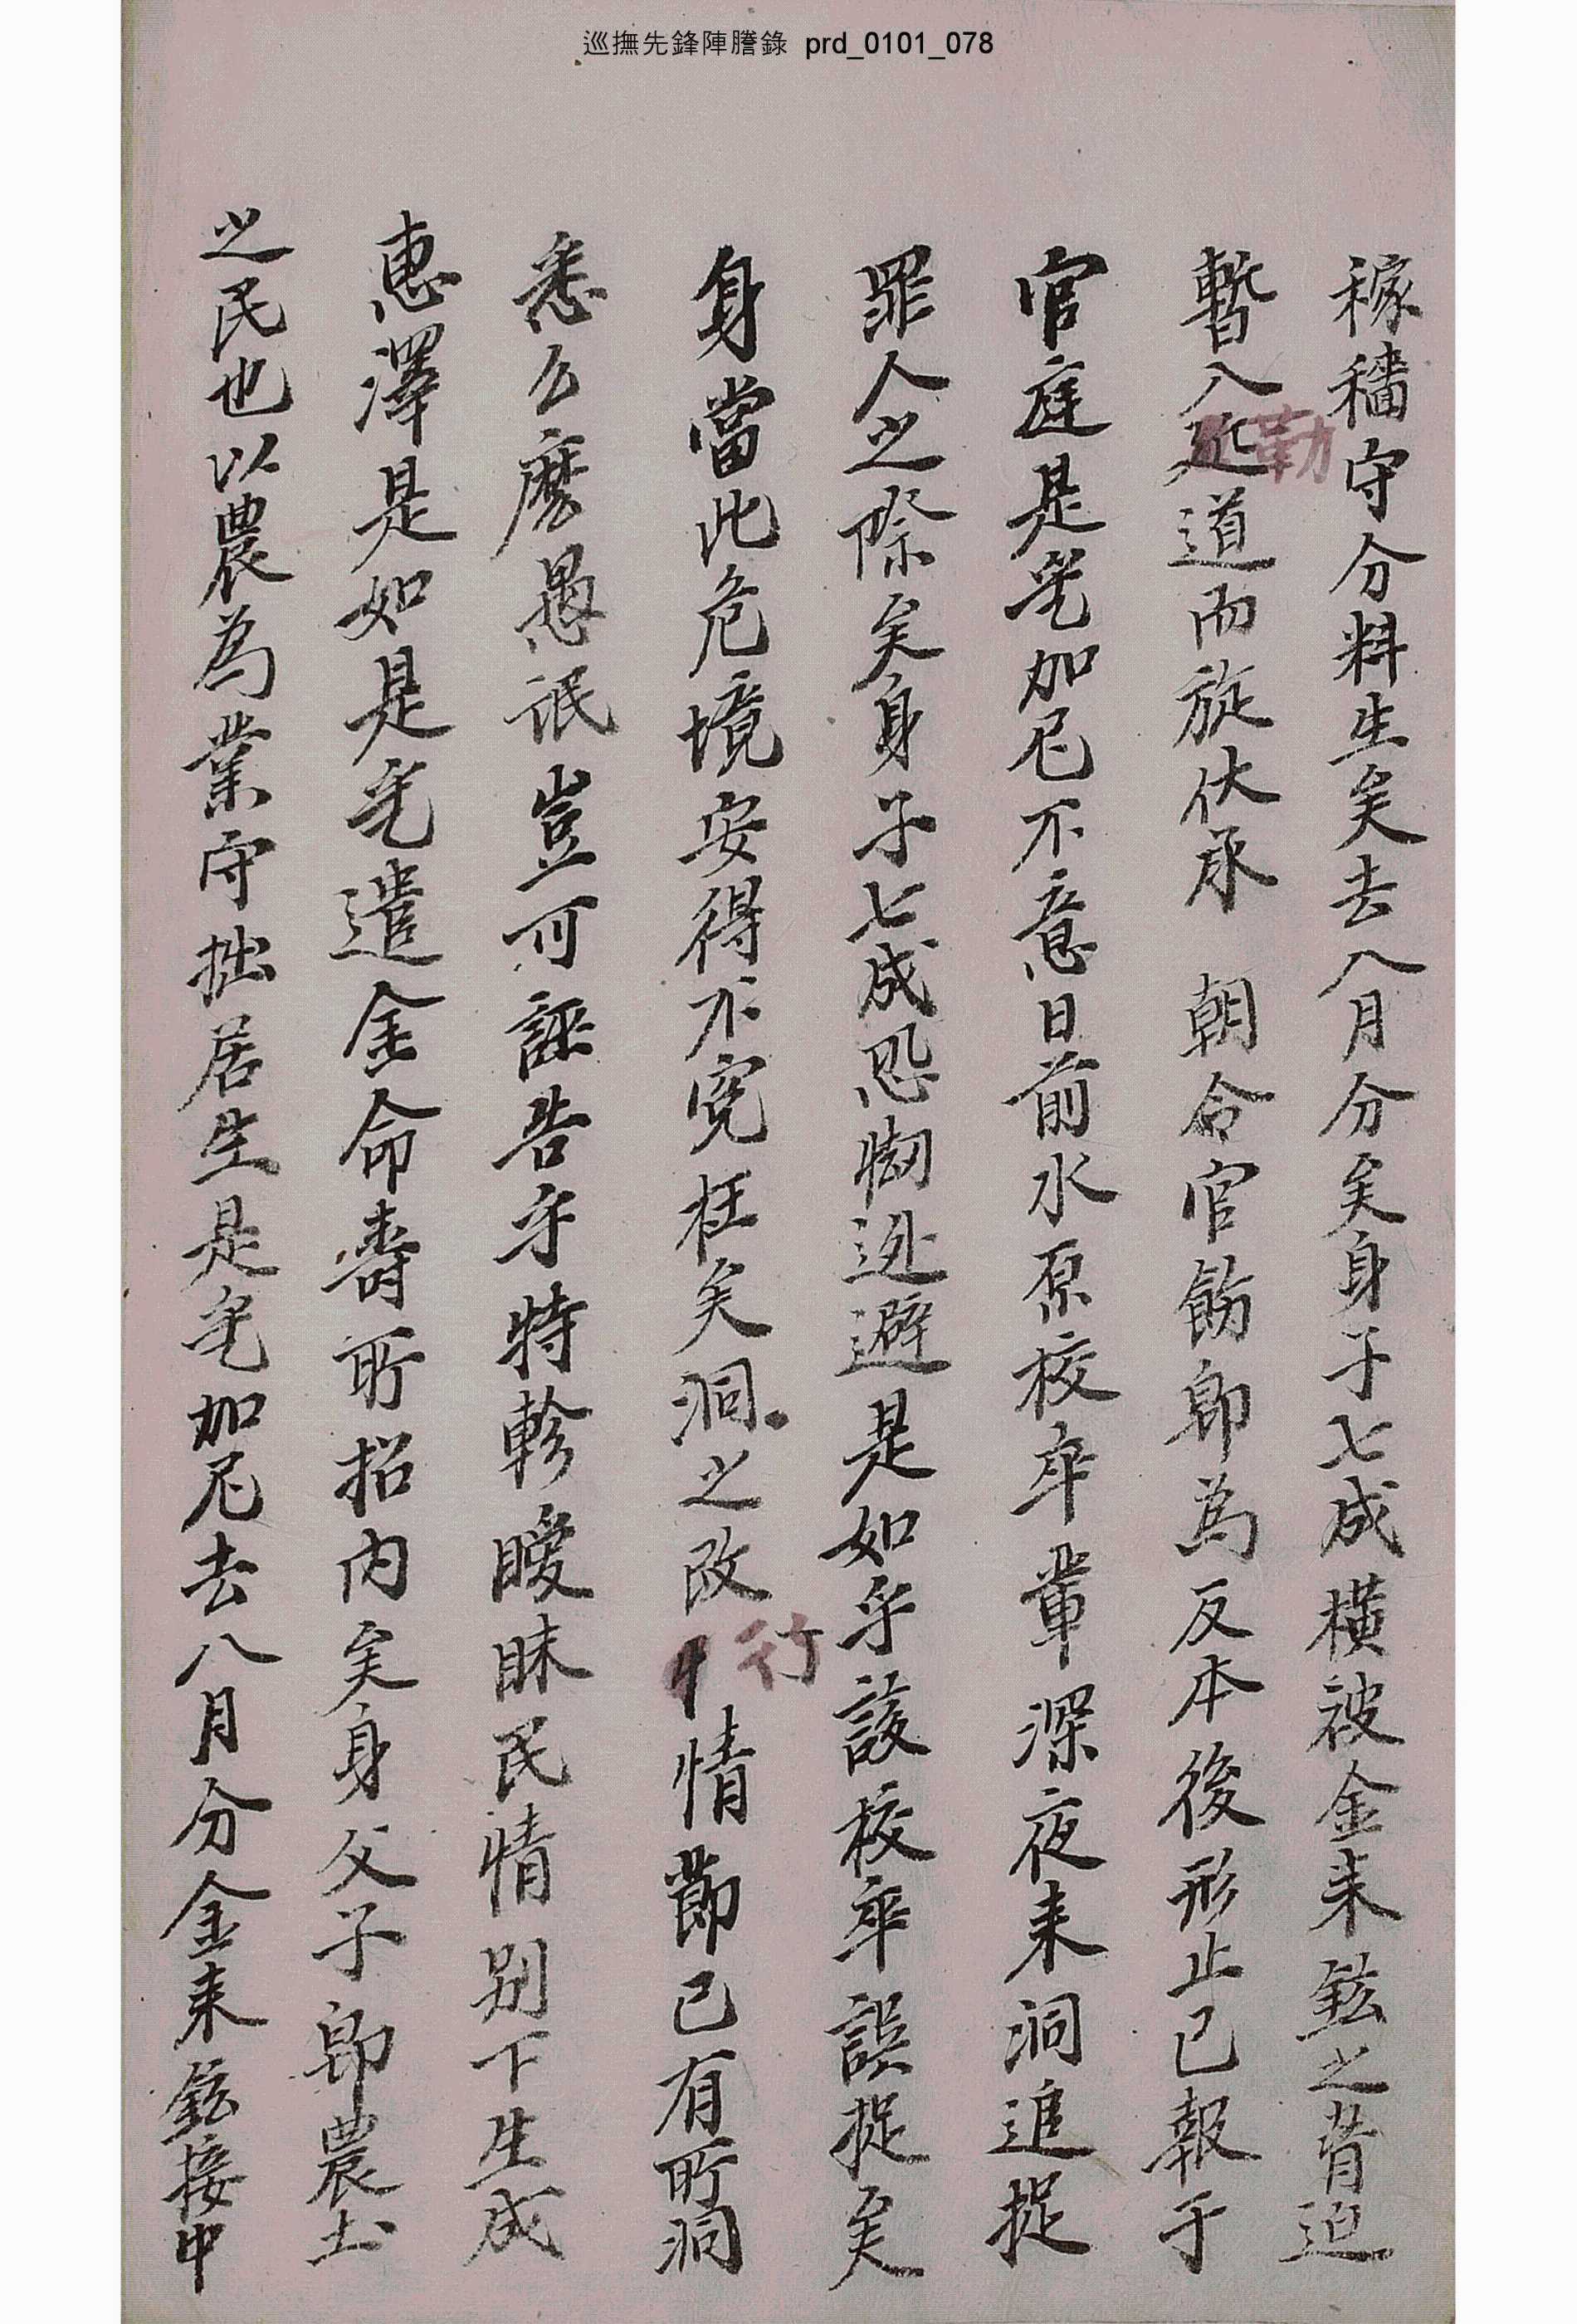 巡撫先鋒陣謄錄 prd_0101_078
稼穡守分料生矣去八月分矣身子七成橫被金来鉉之脅迫
暫入勒道而旋伏承 朝令官飭卽爲反本後形止已報于
官庭是乎加尼不意日前水原校卒輩深夜来洞追捉
罪人之際矣身子七成恐㥘逊避是如乎該校卒誤捉矣
身當此危境安得不寃枉矣洞之改行情節已有所洞
悉么麽愚氓豈可誣告乎特軫曖昧民情别下生成
惠澤是如是乎遣金命壽所招內矣身父子卽農土
之民也以農爲業守拙居生是乎加尼去八月分金来鉉接中